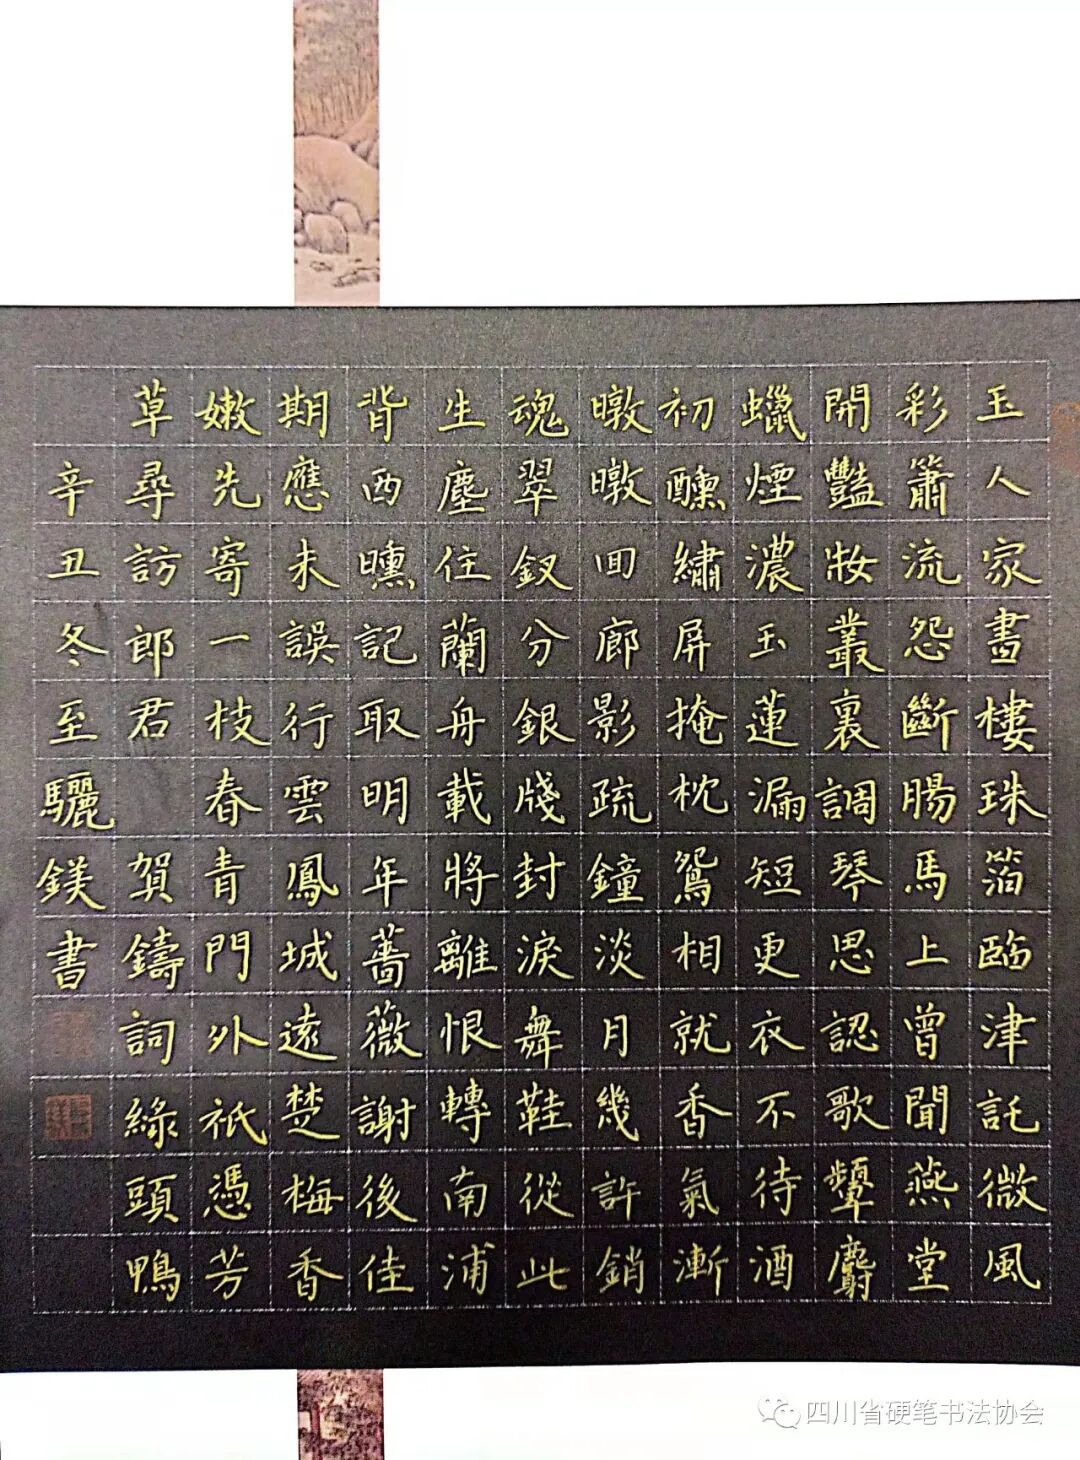 玉人家畫樓珠箔臨津託微風
彩簫流怨斷腸馬上曾聞燕堂
開豔妝叢裏調琴思認歌顰麝
蠟煙濃玉蓮漏短更衣不待酒
初醺繡屏掩枕鴛相就香氣漸
暾暾回廊影疏鐘淡月幾許銷
魂翠釵分銀牋封淚舞鞋從此
生塵住蘭舟載將離恨轉南浦
背西曛記取明年薔薇謝後佳
期應未誤行雲鳳城遠楚梅香
嫩先寄一枝春青門外祇憑芳
草尋訪郎君 賀鑄詞綠頭鴨
辛丑冬至驪鎂書
四川省硬笔书法协会